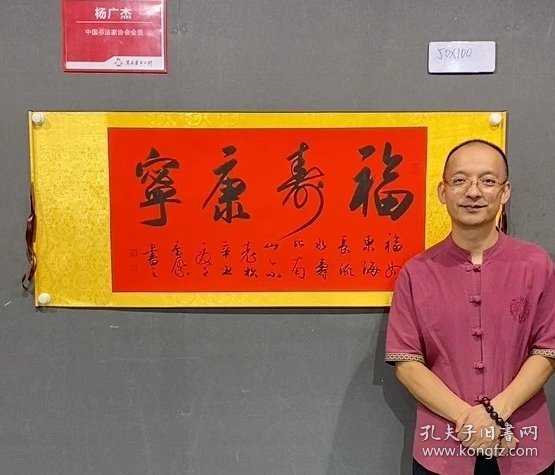 杨广杰
中国书法家协会会员
50X100
福寿康寧
福如
東海
長流
水壽
比南
山不
老松
辛丑
書之
孔夫子旧书网
www.kongfz.com